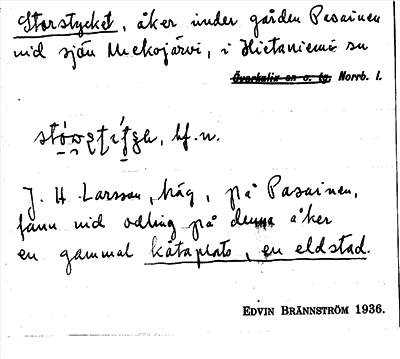 Storstycket, åker under gården Pasainen
vid sjön Miekojärvi, i Hietaniemi sn
Överkalix sn o. tg, Norrb. l.
bf. n.
J. H. Larsson, häg, på Pasainen,
fann vid odling på denna åker
en gammal kåtaplats, en eldstad.
EDVIN BRÄNNSTRÖM 1936.